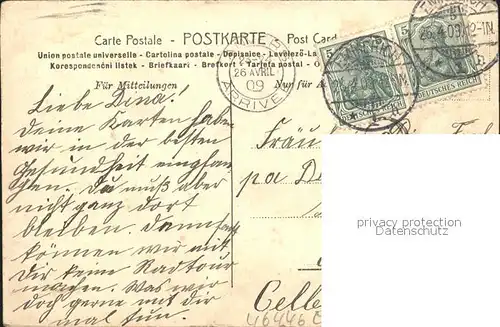 Carte Postale - POSTKARTE - Post Card
Union postale universelle - Cartolina postale - Dopisnice - Levelező-La
Korespondenční lístek - Briefkaart - Brefkort - Tarjeta postal - O
Für Mitteilungen
Nur für A
26 AVRIL
09
ARRIVEE
5
5
DEUTSCHES REICH
DEUTSCHES REICH
26.4.09.12-1N.
Liebe Dina!
Deine Karten haben
wir in der besten
Gesundheit empfan-
gen. Du mußt aber
nicht ganz dort
bleiben. Dann
können wir mit
Dir keine Radtour
machen. Was wir
doch gerne mit dir
mal tun.
Fräu
pa D
Celle
46446
privacy protection
Datenschutz